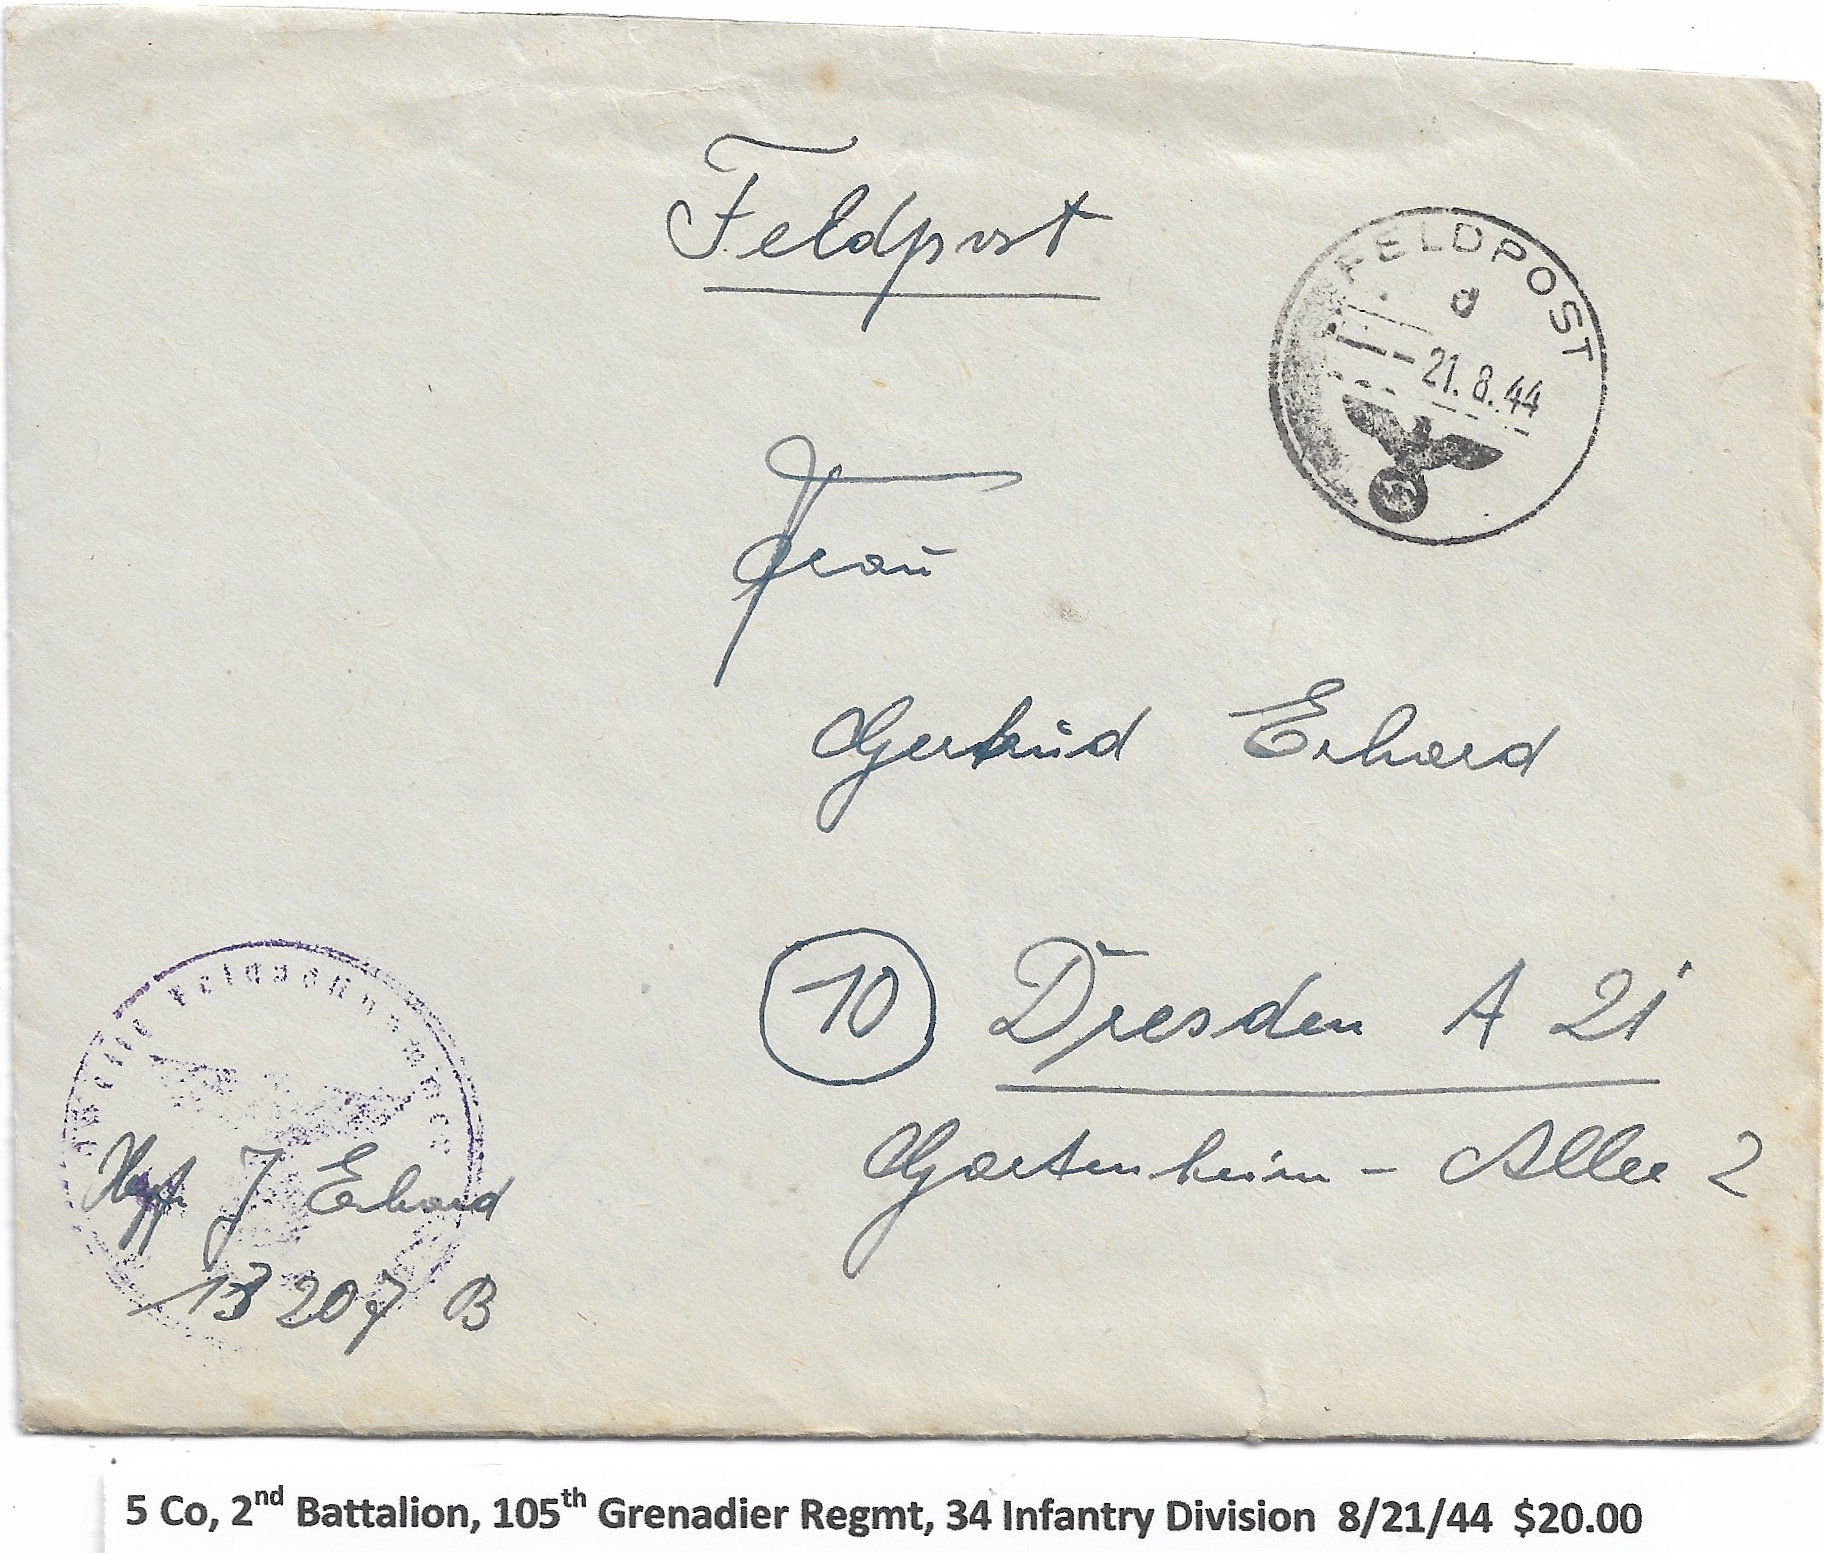 Feldpost
FELDPOST
d
21.8.44
Frau
Gertrud Erhard
10 Dresden A 21
Gartenheim - Allee 2
J Erhard
13 207 B
5 Co, 2nd Battalion, 105th Grenadier Regmt, 34 Infantry Division 8/21/44 $20.00